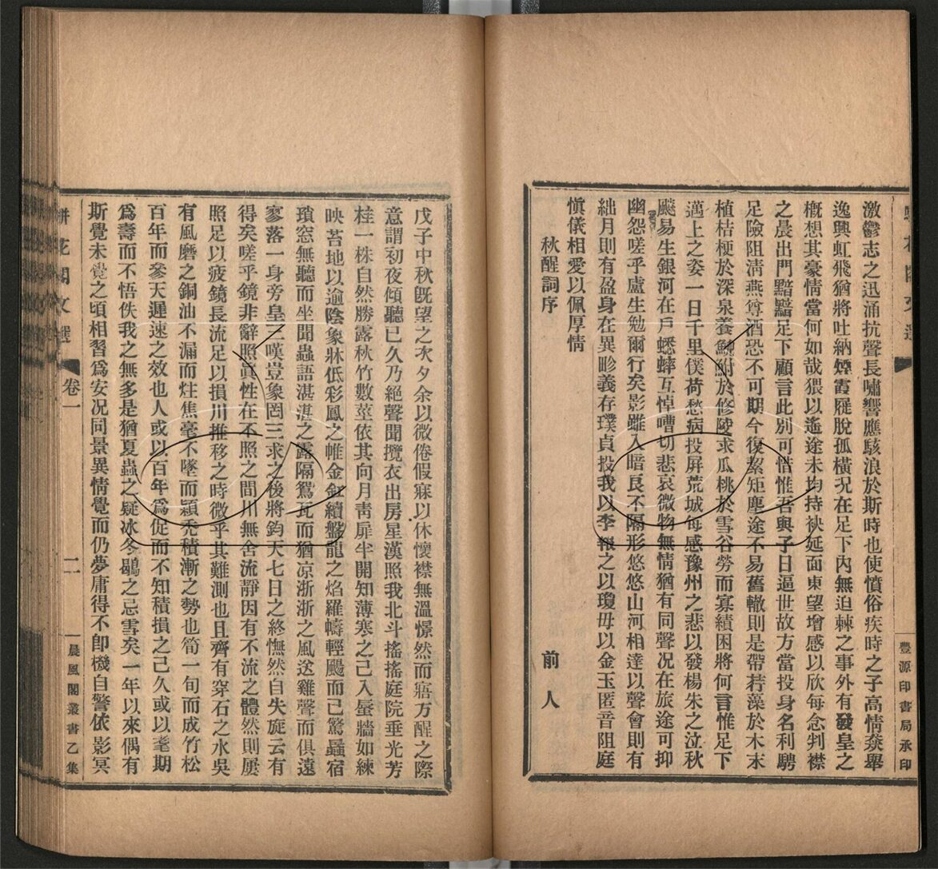 激鬱志之迅涌抗聲長嘯響應駭浪於斯時也使憤俗疾時之子高情焱舉
逸興虹飛猶將吐納煙霞屣脫孤橫況在足下內無迫棘之事外有發皇之
概想其豪情當何如哉猥以遙途未均持袂延面東望增感以欣每念判襟
之晨出門黯黯足下顧言此別可惜惟吾與子日逼世故方當投身名利騁
足險阻清燕尊酒恐不可期今復絜矩塵途不易舊轍則是帶荇藻於木末
植桔梗於深泉養鱗鮒於修陵求瓜桃於雪谷勞而寡績困將何言惟足下
邁上之姿一日千里僕荷愁病投屏荒城每感豫州之悲以發楊朱之泣秋
飈易生銀河在戶蟋蟀互悼嘈切悲哀微物無情猶有同聲況在旅途可抑
幽怨嗟乎廬生勉爾行矣影雖入暗良不隔形悠悠山河相達以聲會則有
絀月則有盈身在異畛義存璞貞投我以李報之以瓊毋以金玉匿音阻庭
愼儀相愛以佩厚情
秋醒詞序
前人
戊子中秋既望之次夕余以微倦假寐以休懷襟無溫憬然而寤方醒之際
意謂初夜傾聽已久乃絶聲聞攬衣出房星漢照我北斗搖搖庭院垂光芳
桂一株自然勝露秋竹數莖依其向月靑扉半開知薄寒之已入蜃牆如練
映苔地以逾陰象牀低彩鳳之帷金釭續盤龍之焰羅幬輕颺而已驚蟲宿
瑣窓無聽而坐聞蟲語湛湛之露隔鴛瓦而猶凉浙浙之風送雞聲而俱遠
寥落一身旁皇三嘆豈象罔三求之後將鈞天七日之終憮然自失旋云有
得矣嗟乎鏡非辭照眞性在不照之間川無舍流靜因有不流之體然則屢
照足以疲鏡長流足以損川推移之時微乎其難測也且齊有穿石之水吳
有風磨之銅油不漏而炷焦毫不墜而穎禿積漸之勢也筍一旬而成竹松
百年而參天遲速之效也人或以百年爲促而不知積損之已久或以耄期
爲壽而不悟佚我之無多是猶夏蟲之疑冰冬鶡之忌雪矣一年以來偶有
斯覺未覺之頃相習爲安況同景異情覺而仍夢庸得不卽機自警依影冥
花閣文選
卷一
二
晨風閣叢書乙集
豐源印書局承印